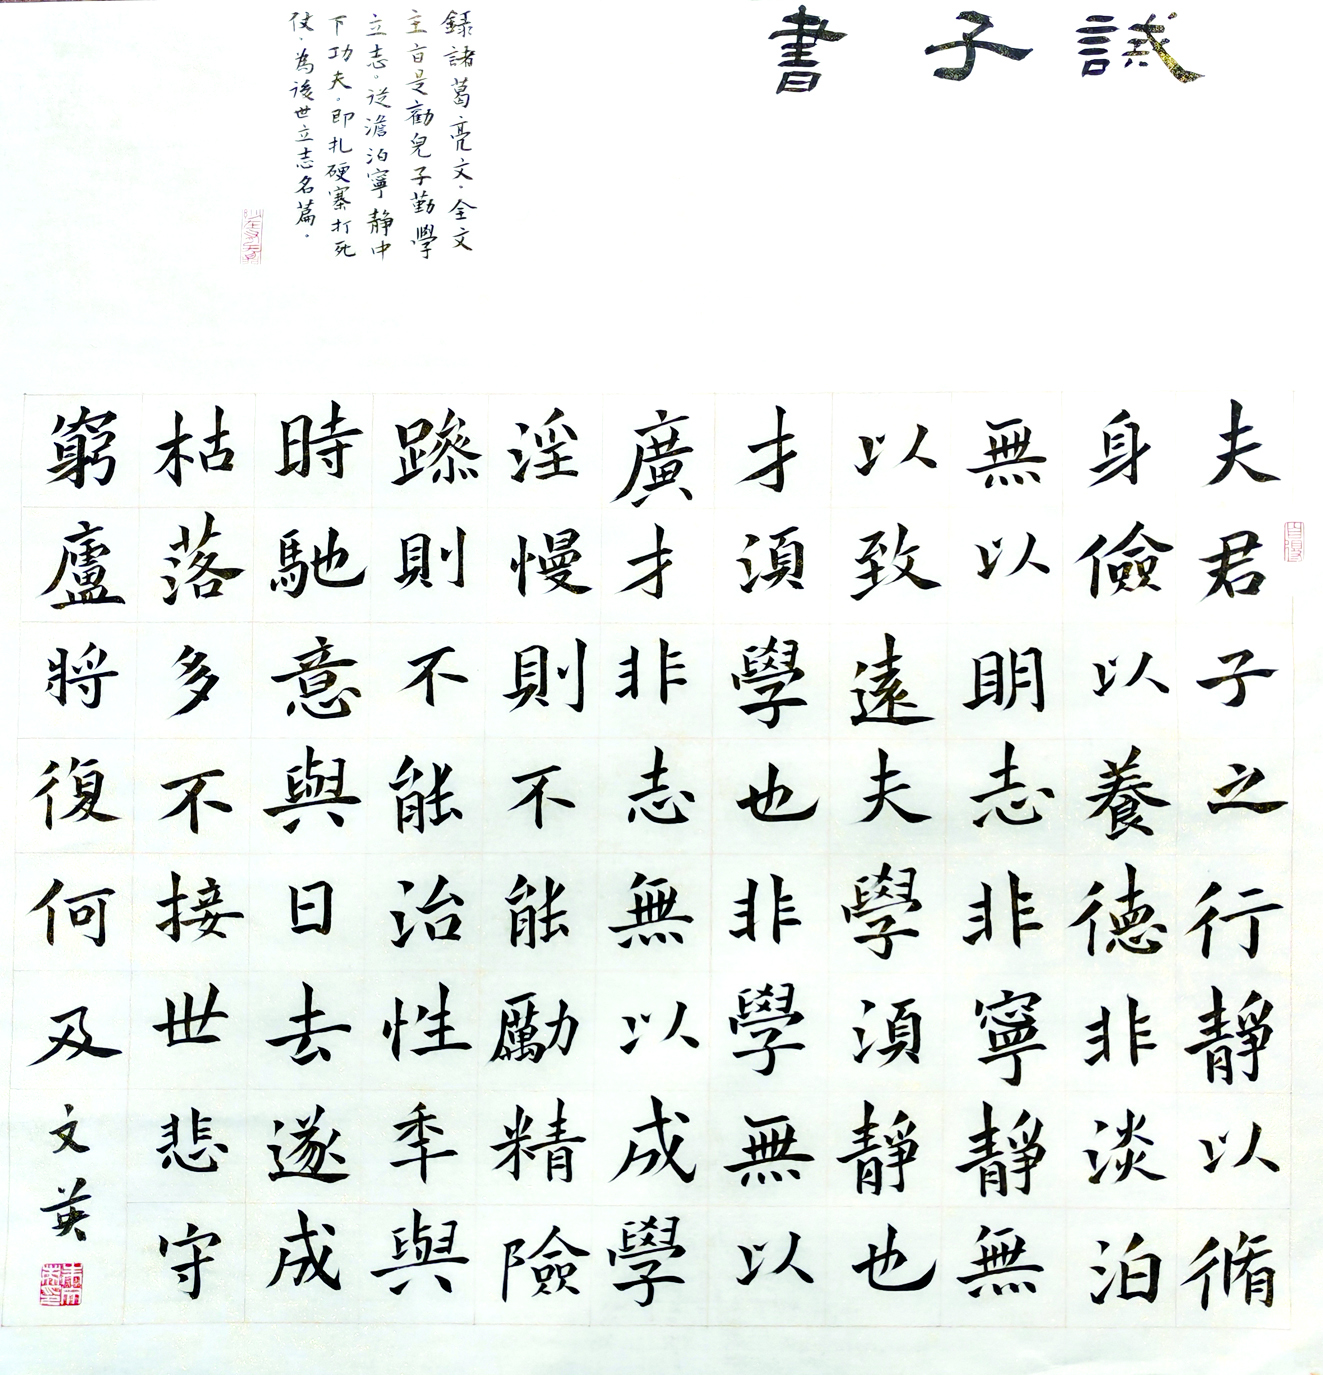 誡子書
夫君子之行靜以脩
身儉以養德非淡泊
無以眀志非寧靜無
以致遠夫學湏靜也
才湏學也非學無以
廣才非志無以成學
淫慢則不能勵精險
躁則不能治性秊與
時馳意與日去遂成
枯落多不接世悲守
窮廬將復何及
文英
錄諸葛亮文、全文
主旨是勸兒子勤學
立志。從澹泊寧靜中
下功夫。即扎硬寨打死
仗、為後世立志名篇。